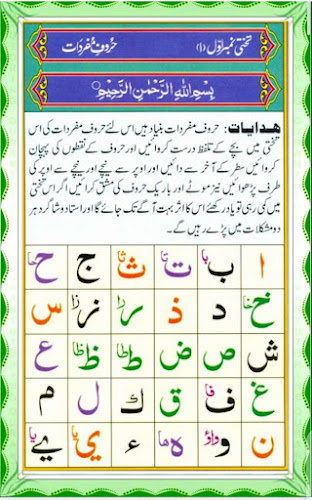 تختی نمبر اوّل (۱) حُروفِ مُفردَات
بِسْمِ اللّٰهِ الرَّحْمٰنِ الرَّحِيْمِ
ھدایات: حروف مفردات بنیاد ہیں اس لئے حروف مفردات کی اس
تختی میں بچے کے تلفظ درست کروائیں اور حروف کے نقطوں کی پہچان
کروائیں سطر کے آخر سے دائیں اور اوپر سے نیچے اور نیچے سے اوپر کی
طرف پڑھوائیں نیز موٹے اور باریک حروف کی مشق کرائیں اگر اس تختی
میں کمی رہی تو یاد رکھئے اس کا اثر بہت آگے تک جائے گا اور استاد و شاگرد ہر
دو مشکلات میں پڑے رہیں گے۔
ا ب با ت تا ث ثا ج ح حا
خ خا د ذ ر را ز زا س
ش ص ض ط طا ظ ظا ع
غ ف فا ق ك ل م
ن و واؤ ه ها ء ي يا ے يا